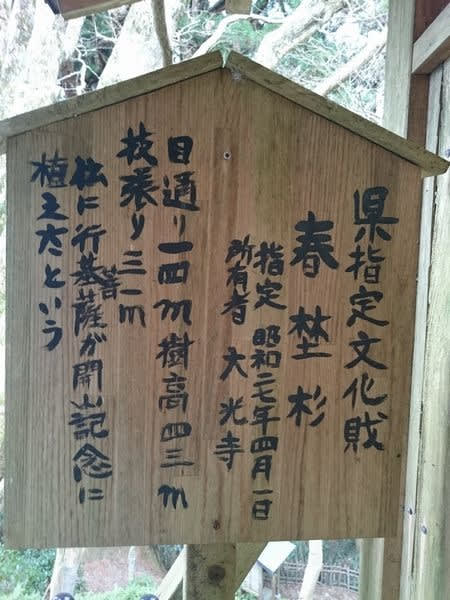 県指定文化財
春埜杉
指定 昭和二七年四月一日
所有者 大光寺
目通り一四m樹高四三m
枝張り三一m
伝に行基菩薩が開山記念に
植えたという